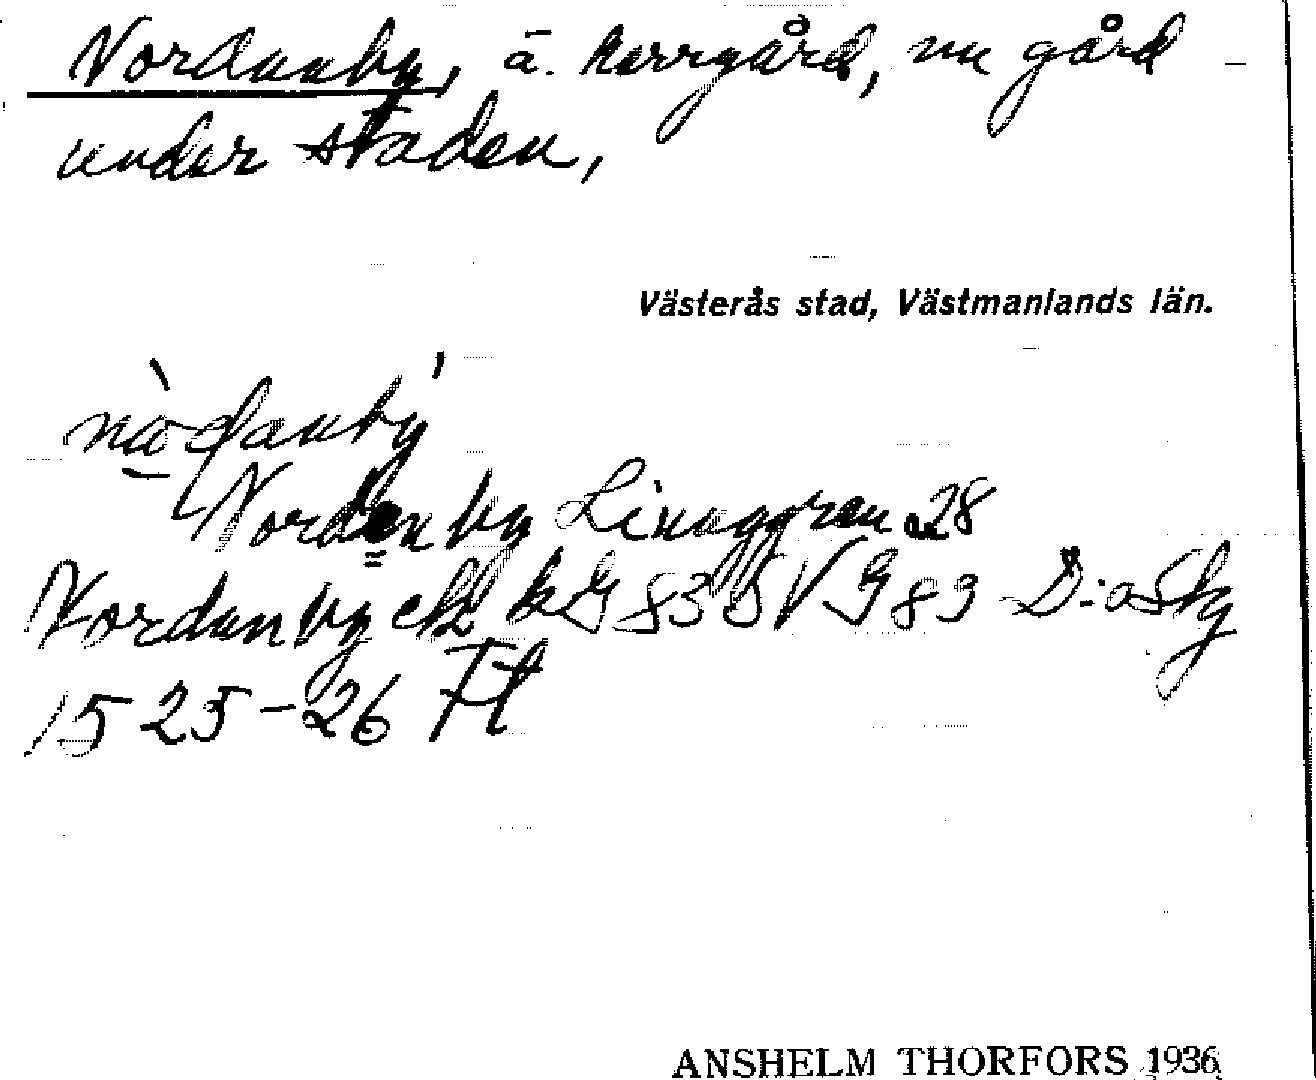 Nordanby, ä. herrgård, nu gård
under staden,
Västerås stad, Västmanlands län.
Nordenby Linaggren 28
Nordanby ek kG 83 b V G 83 D:o Sky
1525–26 Ft
ANSHELM THORFORS 1936